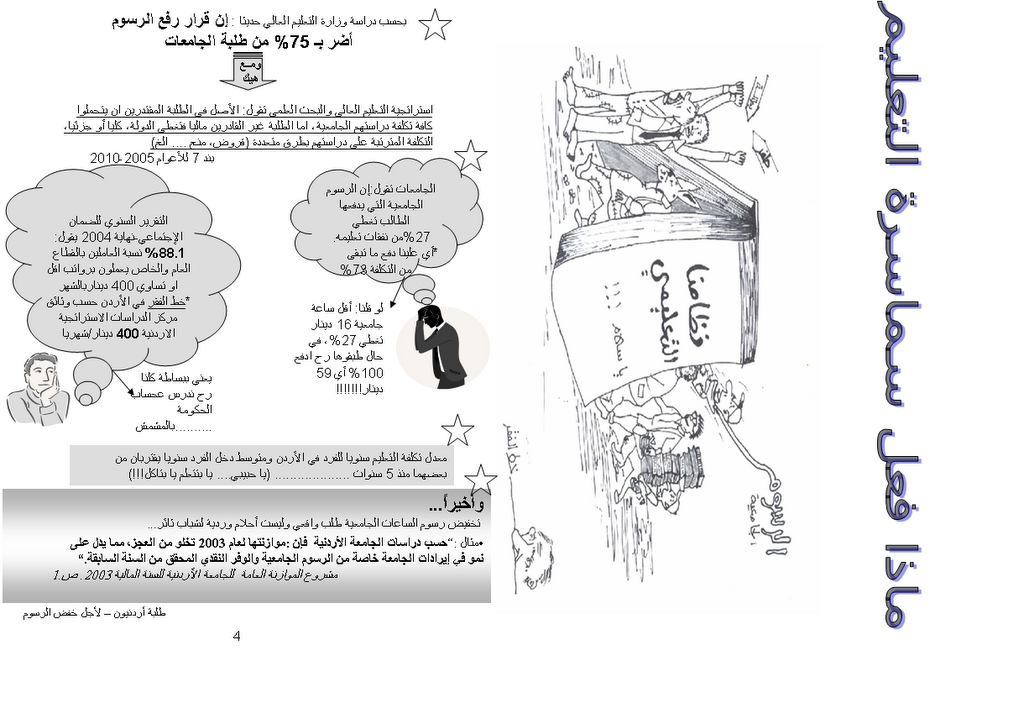 ماذا فعل سماسرة التعليم
نظامنا
التعليمي
يا سهر ...
الرسوم
الجامعية
خط الفقر
بحسب دراسة وزارة التعليم العالي حديثا : إن قرار رفع الرسوم
أضر بـ 75% من طلبة الجامعات
ومـع
هيك
استراتجية التعليم العالي والبحث العلمي تقول: الأصل في الطلبة المقتدرين ان يتحملوا
كافة تكلفة دراستهم الجامعية ، اما الطلبة غير القادرين ماليا فتغطي الدولة، كليا أو جزئيا،
التكلفة المترتبة على دراستهم بطرق متعددة (قروض، منح .... الخ)
بند 7 للأعوام 2005-2010
الجامعات تقول:إن الرسوم
الجامعية التي يدفعها
الطالب تغطي
27%من نفقات تعليمه.
*أي علينا دفع ما تبقى
من التكلفة 73%
لو قلنا: أقل ساعة
جامعية 16 دينار
تغطي 27% ، في
حال طبقوها رح ادفع
100% أي 59
دينار!!!!!!!
التقرير السنوي للضمان
الإجتماعي-نهاية 2004 يقول:
88.1% نسبة العاملين بالقطاع
العام والخاص يعملون برواتب اقل
او تساوي 400 ديناربالشهر
*خط الفقر في الأردن حسب وثائق
مركز الدراسات الاستراتجية
الاردنية 400 دينار/شهريا
يعني ببساطة كلنا
رح ندرس عحساب
الحكومة
..........بالمشمش
معدل تكلفة التعليم سنويا للفرد في الأردن ومتوسط دخل الفرد سنويا يقتربان من
بعضهما منذ 5 سنوات .................... (يا حبيبي.... يا بنتعلم يا بناكل!!!)
وأخيراً...
تخفيض رسوم الساعات الجامعية طلب واقعي وليست أحلام وردية لشباب ثائر...
•مثال : "حسب دراسات الجامعة الأردنية فإن :موازنتها لعام 2003 تخلو من العجز، مما يدل على
نمو في إيرادات الجامعة خاصة من الرسوم الجامعية والوفر النقدي المحقق من السنة السابقة."
مشروع الموازنة العامة للجامعة الأردنية للسنة المالية 2003 . ص.1
طلبة أردنيون – لأجل خفض الرسوم
4